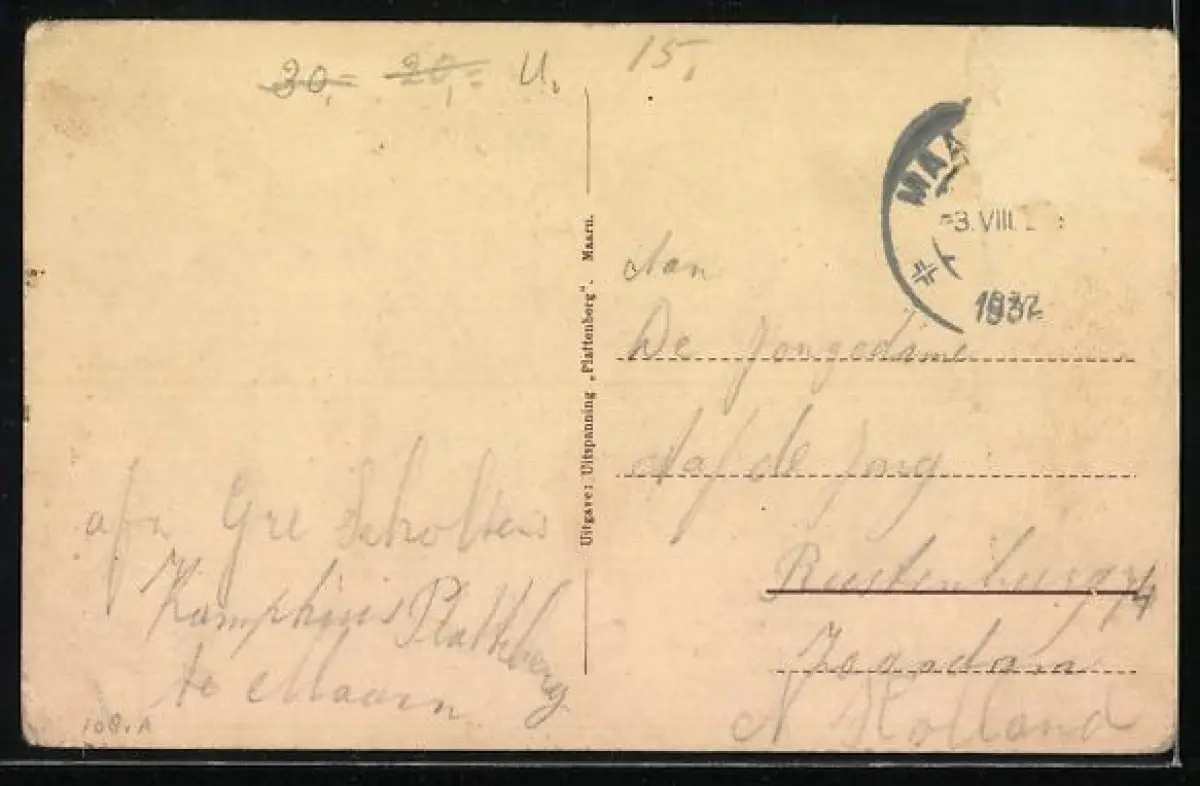 30,- 20,- U.
15,
MAA
-3.VIII.
193
Uitgave: Uitspanning „Plattenberg". Maarn.
Aan
De Jongedame
Aaf de Jong
Rustenburg
N Holland
afz Gre Scholten
Kamphuis Platteberg
te Maarn
108.A